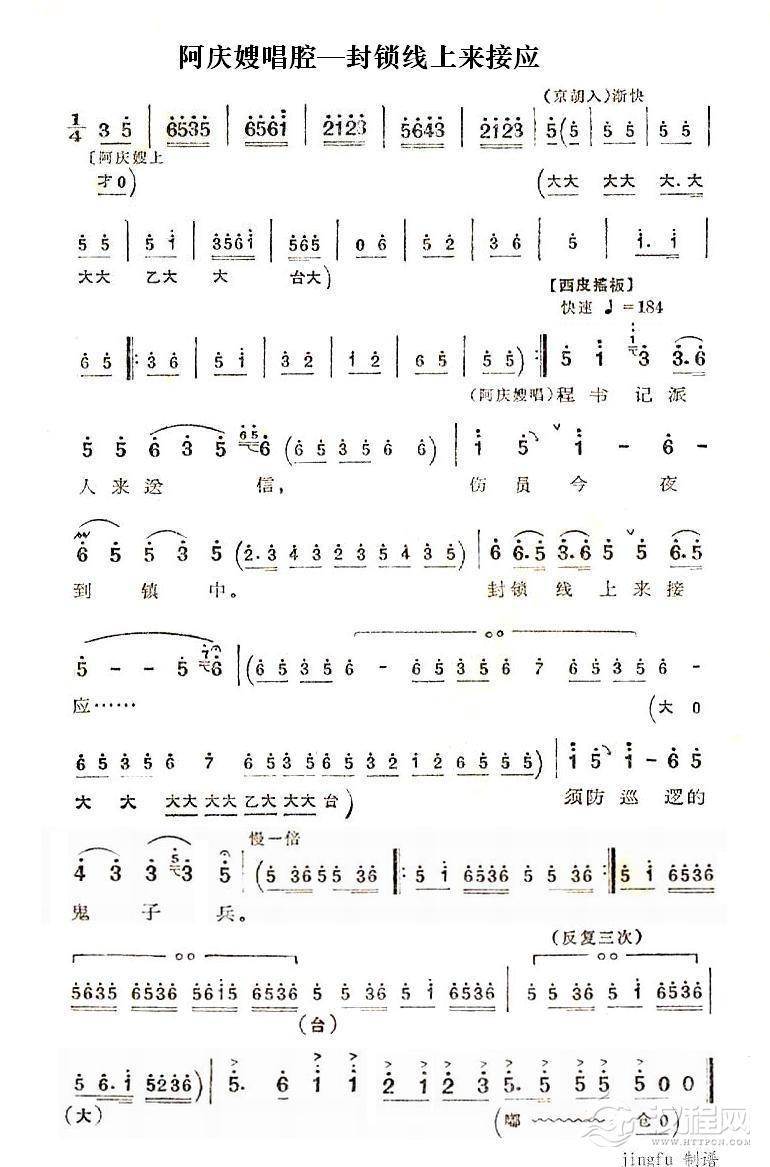 阿庆嫂唱腔—封锁线上来接应
(京胡入)渐快
1/4 3 5 | 6535 | 6561 | 2123 | 5643 | 2123 | 5 (5 | 5 5 | 5 5
〔阿庆嫂上
才0) (大大 大大 大.大
5 5 | 5 1 | 3561 | 565 | 0 6 | 5 2 | 3 6 | 5 | 1. 1
大大 乙大 大 台大)
【西皮摇板】
快速 ♩=184
6 5 |: 3 6 | 5 1 | 3 2 | 1 2 | 6 5 | 5 5) :| 5 1 3 3.6
(阿庆嫂唱)程 书 记 派
5 5 6 3 5 6 (6 5 3 5 6 6) | 1 5 1 - 6
人 来 送 信, 伤 员 今 夜
6 5 5 3 5 (2.3 4 3 2 3 5 4 3 5) | 6 6.5 3.6 5 6.5
到 镇 中。 封 锁 线 上 来 接
5 - - 5 6 | (6 5 3 5 6 - 6 5 3 5 6 7 6 5 3 5 6 -
应…… (大 0
6 5 3 5 6 7 6 5 3 5 6 2 1 2 6 5 3 2 1 2 6 5 6 5) | 1 5 1 - 6 5
大 大 大大 大大 乙大 大大 台) 须防 巡 逻的
慢一倍
4 3 3 3 5 (5 36 55 36 |: 5 1 6536 5 5 6536 :| 5 1 6536
鬼 子 兵。
(反复三次)
5635 6536 5615 6536 5 5 36 5 1 6536 5 5 36 5 1 6536
(台)
5 6.1 5236) | 5. 6 1 1 | 2 1 2 3 | 5. 5 5 5 | 5 0 0
(大) (嘟 仓 0)
汉程网
WWW.HTTPCN.COM
jingfu 制谱